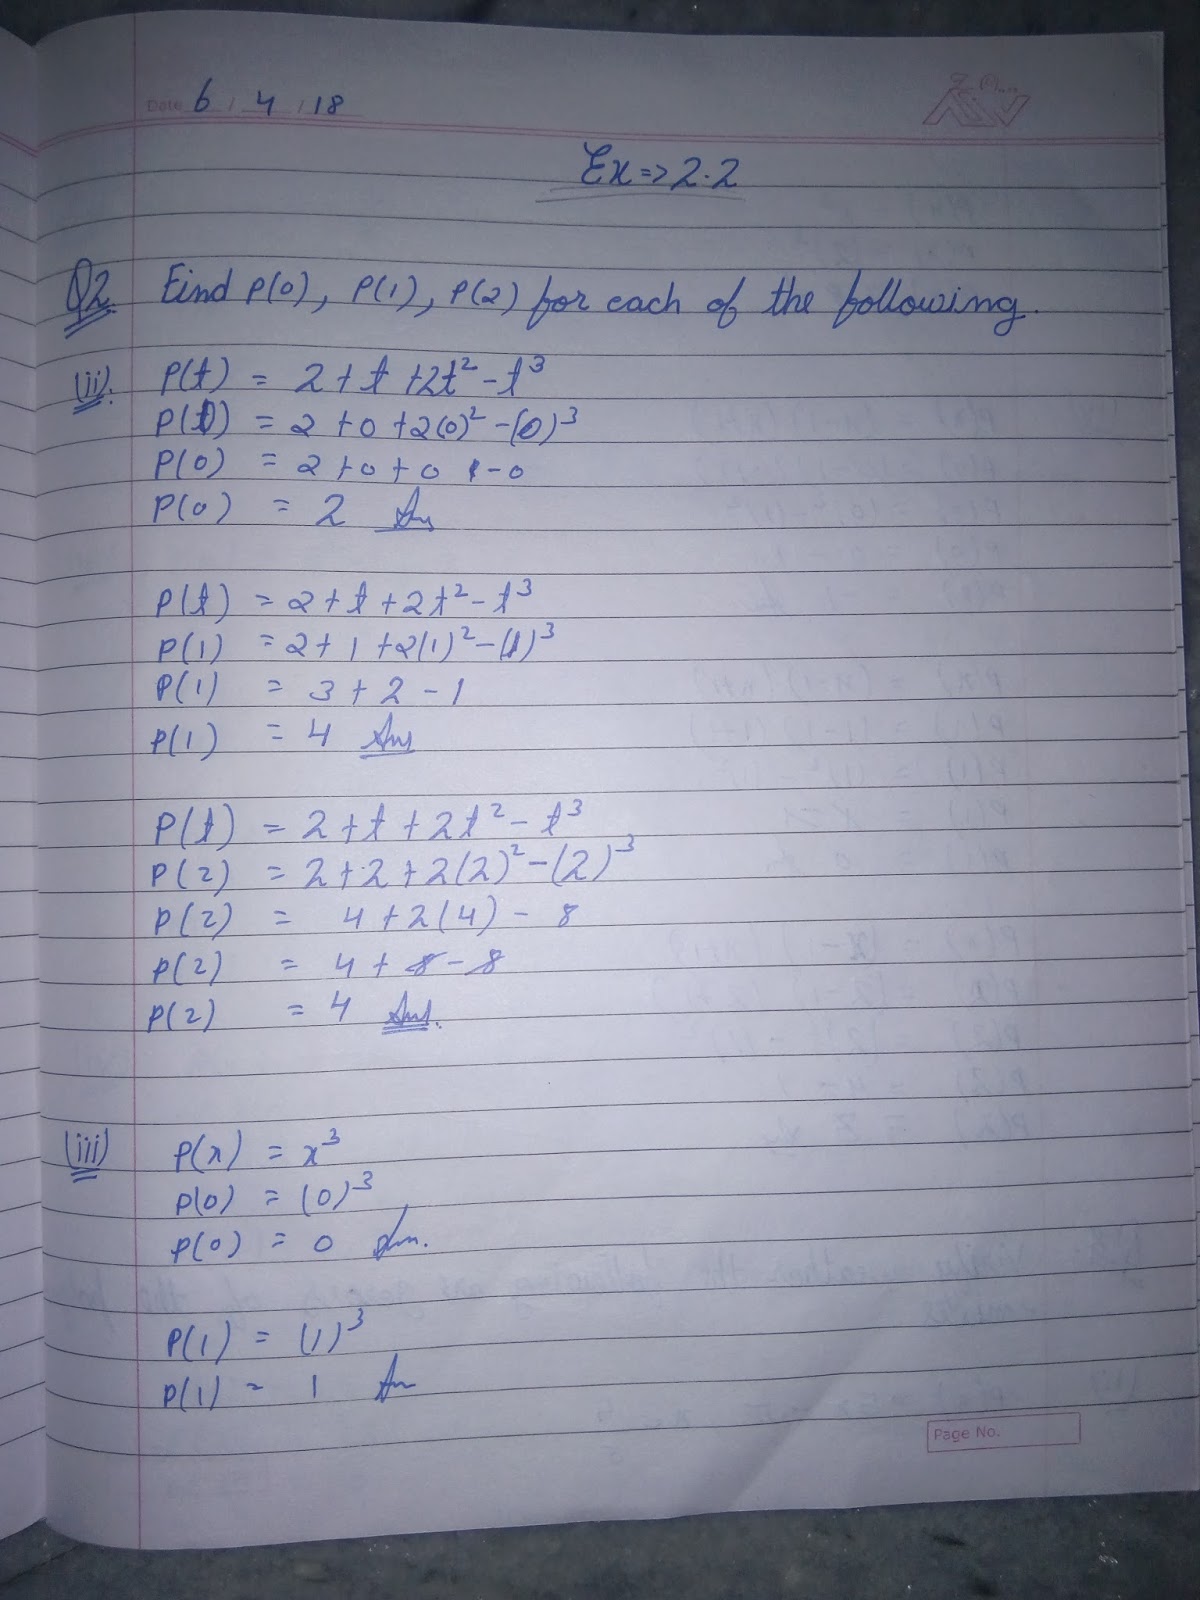 Date 6 / 4 / 18
Ex => 2.2
Q2. Find P(0), P(1), P(2) for each of the following.
(ii). P(t) = 2 + t + 2t² - t³
P(0) = 2 + 0 + 2(0)² - (0)³
P(0) = 2 + 0 + 0 - 0
P(0) = 2 Ans
P(t) = 2 + t + 2t² - t³
P(1) = 2 + 1 + 2(1)² - (1)³
P(1) = 3 + 2 - 1
P(1) = 4 Ans
P(t) = 2 + t + 2t² - t³
P(2) = 2 + 2 + 2(2)² - (2)³
P(2) = 4 + 2(4) - 8
P(2) = 4 + 8 - 8
P(2) = 4 Ans.
(iii) P(x) = x³
P(0) = (0)³
P(0) = 0 Ans.
P(1) = (1)³
P(1) = 1 An
Page No.